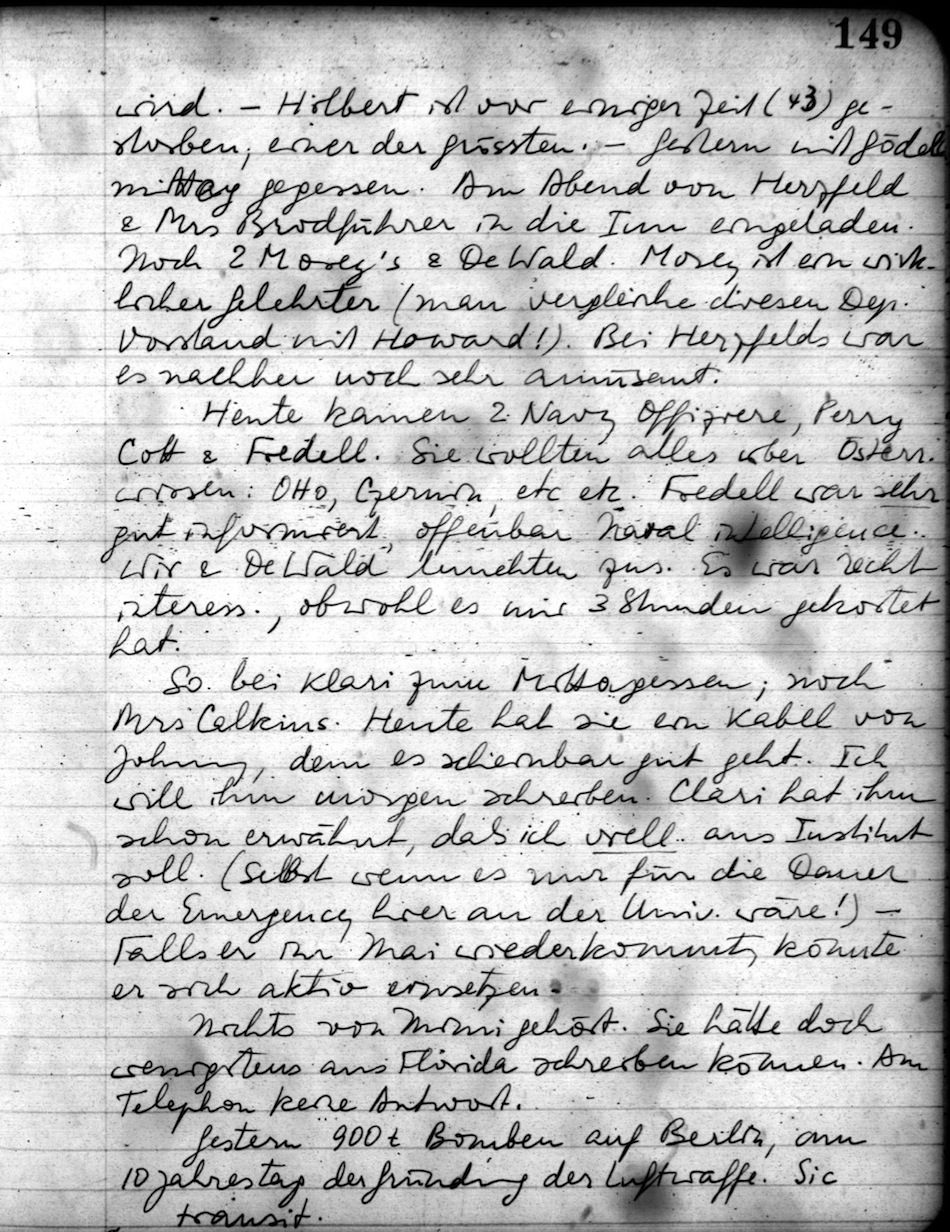 149
wird. – Hilbert ist vor einiger Zeit (43) ge-
storben; einer der grössten. – Gestern mit Gödel
mittag gegessen. Am Abend von Herzfeld
& Mrs Brodführer in die Inn eingeladen.
Noch 2 Morey's & DeWald. Morey ist ein wirk-
licher Gelehrter (man vergleiche diesen Dep.
Vorstand mit Howard!). Bei Herzfelds war
es nachher noch sehr amüsant.
Heute kamen 2 Navy Offiziere, Perry
Cott & Fredell. Sie wollten alles über Österr.
wissen: Otto, Czernin, etc etc. Fredell war sehr
gut informiert, offenbar Naval intelligence.
Wir & DeWald lunchten zus. Es war recht
interess., obwohl es mir 3 Stunden gekostet
hat.
So. bei Klari zum Mittagessen; noch
Mrs Calkins. Heute hat sie ein Kabel von
Johnny, dem es scheinbar gut geht. Ich
will ihm morgen schreiben. Clari hat ihm
schon erwähnt, daß ich vvell. ans Institut
soll. (Selbst wenn es nur für die Dauer
der Emergency hier an der Univ. wäre!) –
Falls er im Mai wiederkommt, könnte
er sich aktiv einsetzen.
Nichts von Mimi gehört. Sie hätte doch
wenigstens aus Florida schreiben können. Am
Telephon keine Antwort.
Gestern 900 t Bomben auf Berlin, am
10 Jahrestag der Gründung der Luftwaffe. Sic
transit.